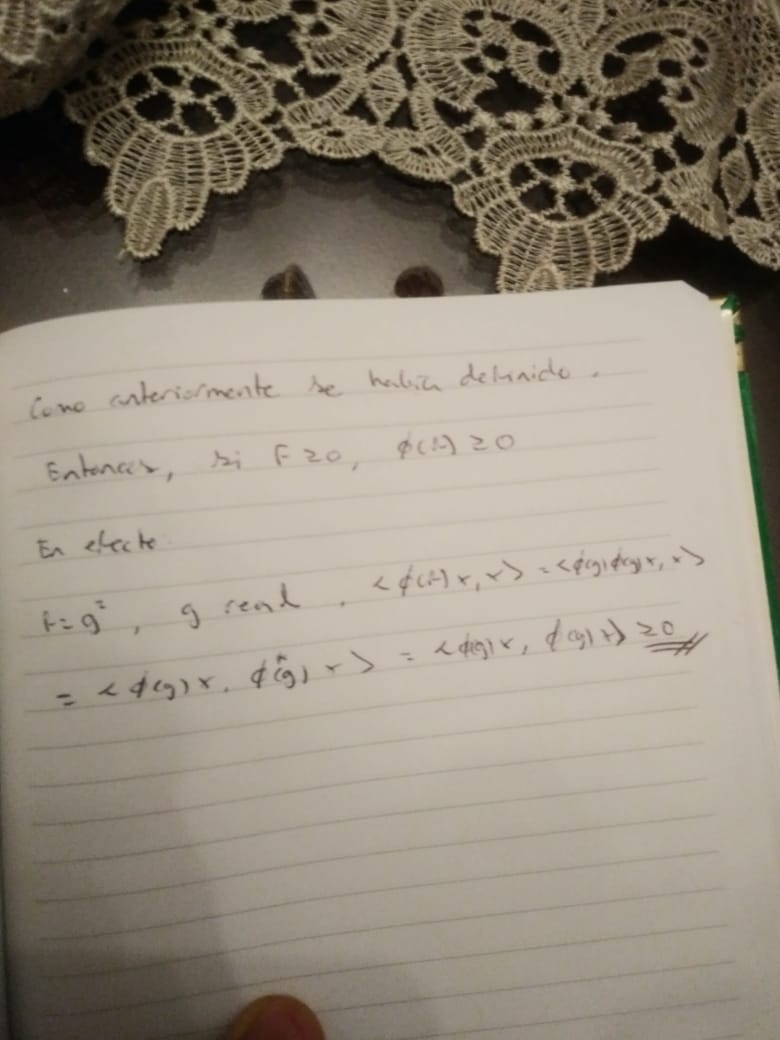 Como anteriormente se había definido.
Entonces, si F ≥ 0, φ(F) ≥ 0
En efecto
F = g², g real, <φ(F)x, x> = <φ(g)φ(g)x, x>
= <φ(g)x, φ*(g)x> = <φ(g)x, φ(g)x> ≥ 0